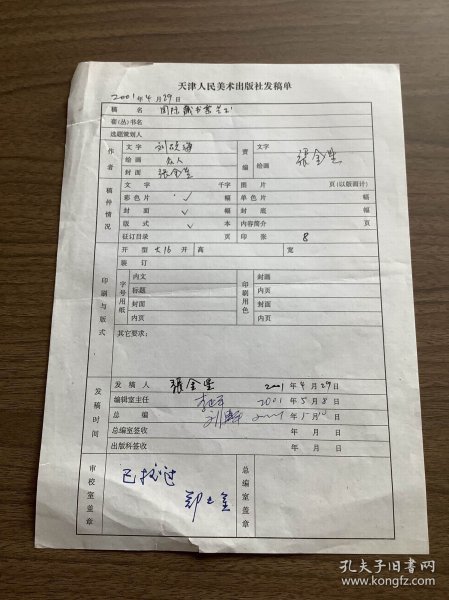 天津人民美术出版社发稿单
2001年4月29日
稿 名 国际藏书票
套(丛)书名
选题策划人
作者 文字 刘硕海 责编 文字
绘画 众人 绘画 張金生
封面 張金生
稿件情况 文字 千字 图片 页(以版面计)
彩色片 ✓ 幅 单色片 幅
封面 ✓ 幅 封底 幅
版式 ✓ 本 内容简介 页
征订目录 页 印张 8
印刷与版式 开型 大16 开 高 宽
装订
字号用纸 内文 印刷用色 封面
标题 内页
封面 封面
内页 内页
其它要求:
发稿时间 发稿人 張金生 2001年4月29日
编辑室主任 2001年5月8日
总编 年5月10日
总编室签收 年 月 日
出版科签收 年 月 日
审校室盖章 已校过 总编室盖章
郑
孔夫子旧书网
www.kongfz.com